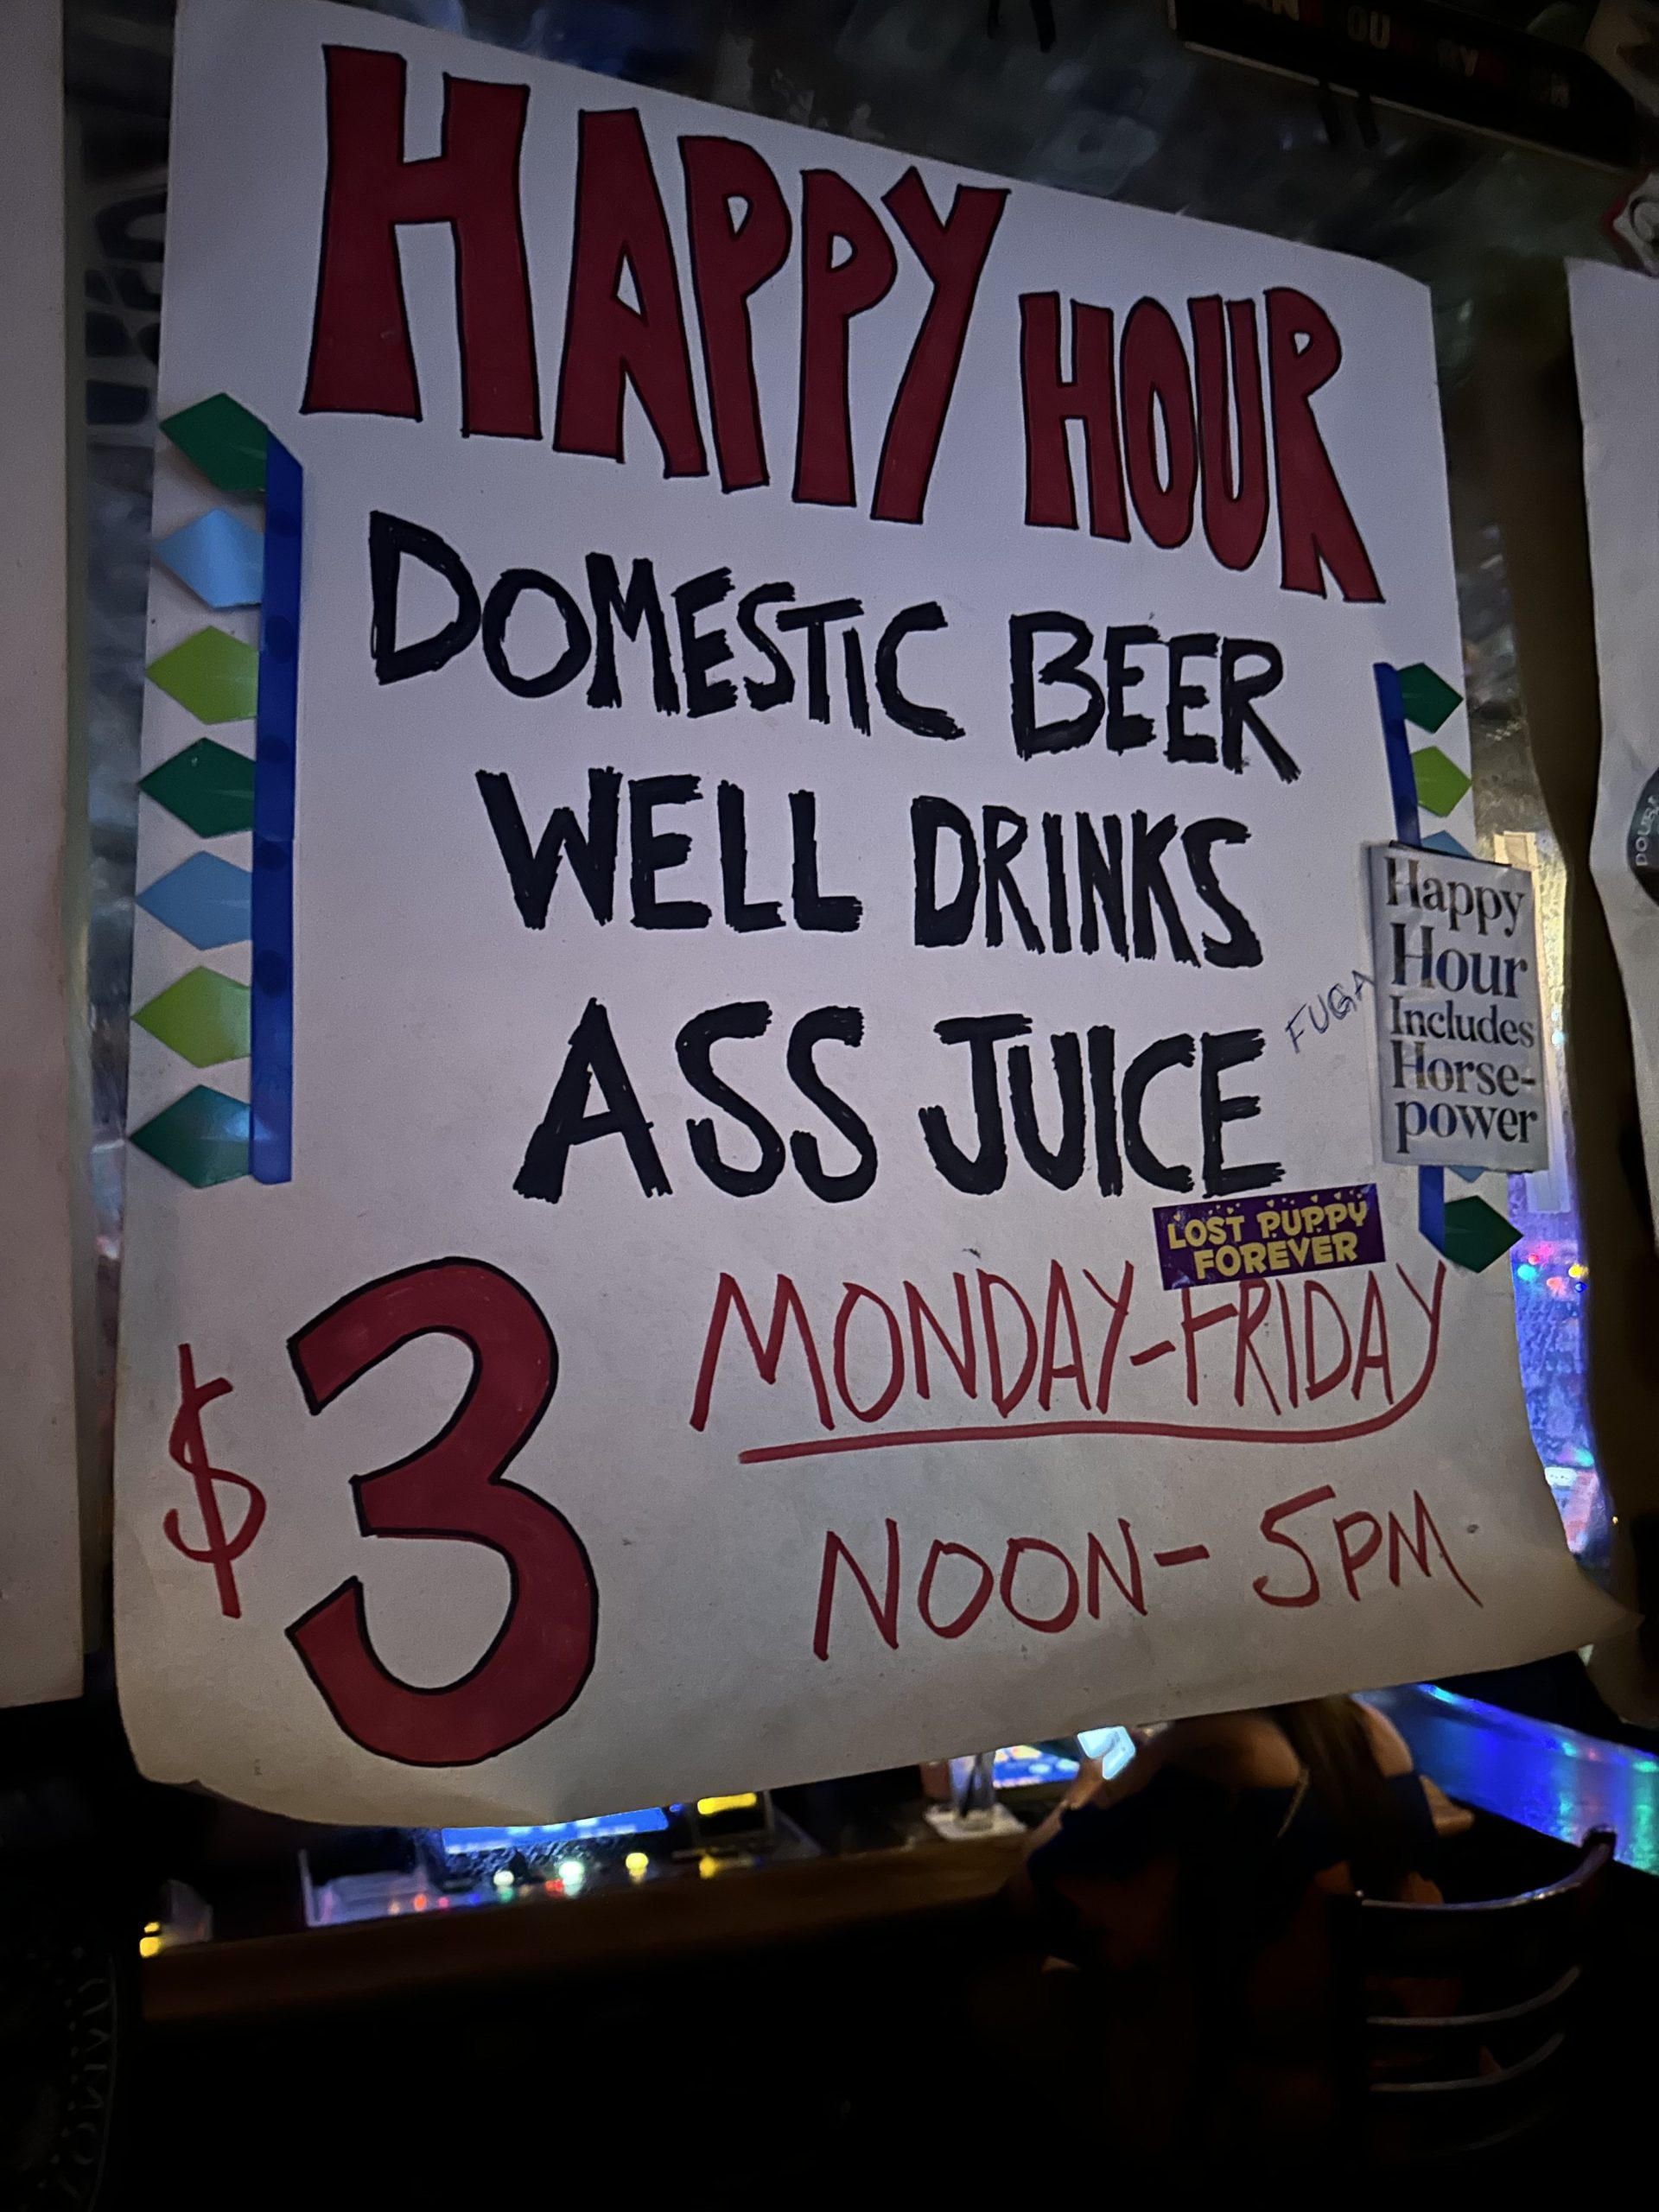 HAPPY HOUR
DOMESTIC BEER
WELL DRINKS
ASS JUICE
FUGA
Happy
Hour
Includes
Horse-
power
LOST PUPPY
FOREVER
$3
MONDAY-FRIDAY
NOON-5PM